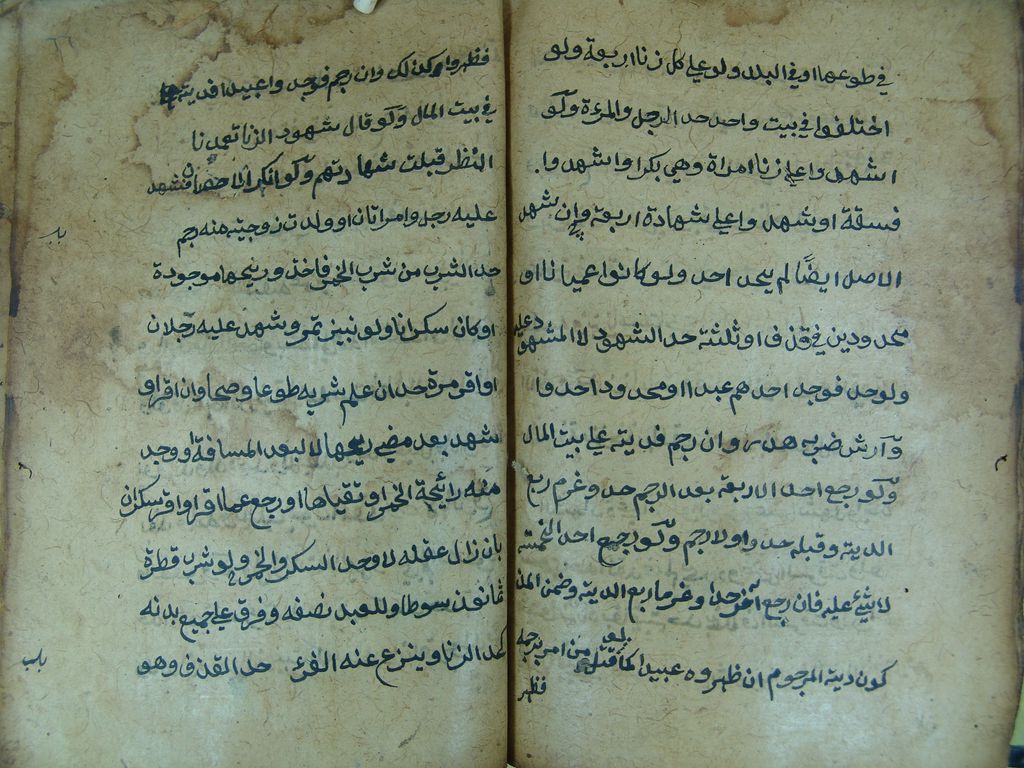 في طوعها او في البلد ولو على كل زنا اربعة ولو
اختلفوا في بيت واحد حد الرجل والمرءة ولو
اشهدوا على زنا امراة وهي بكر او اشهدوا
فسقة او شهدوا على شهادة اربعة وان شهد
الاصل ايضًا لم يحد احد ولو كانوا عميانا او
محدودين في قذف او ثلثة حد الشهود لا المشهود عليه
ولو حد فوجد احدهم عبدا او محدودا حدوا
وآرش ضربه هدر وان رجم فديته على بيت المال
ولو رجع احد الاربعة بعد الرجم حد وغرم ربع
الدية وقبله حدوا ولا رجم ولو رجع احد الخمسة
لا شئ عليه فان رجع آخر حدا وغرما ربع الدية وضمن المذ
كون دية المرجوم ان ظهروه عبيدا كما قتل من امر برجمه
فظهر
فظهروا كذلك وان رجم فوجدوا عبيدا فديته
في بيت المال ولو قال شهود الزنا تعمدنا
النظر قبلت شهادتهم ولو انكر الاحصان فشهد
عليه رجل وامراتان او ولدت زوجيته منه رجم
باب
حد الشرب من شرب الخمر فاخذ وريحها موجودة
او كان سكرانا ولو نبيذ تمر وشهد عليه رجلان
او اقر مرة حد ان علم شربه طوعا وصحا وان اقر او
شهد بعد مضي ريحها لا لبعد المسافة او وجد
منه رائحة الخمر او تقياها او رجع عما اقر او اقر سكران
بان زال عقله لا وحد السكر والخمر ولو شرب قطرة
ثمانون سوطا وللعبد نصفه وفرق على جميع بدنه
باب
كحد الزنا وينزع عنه الفرو حد القذف وهو